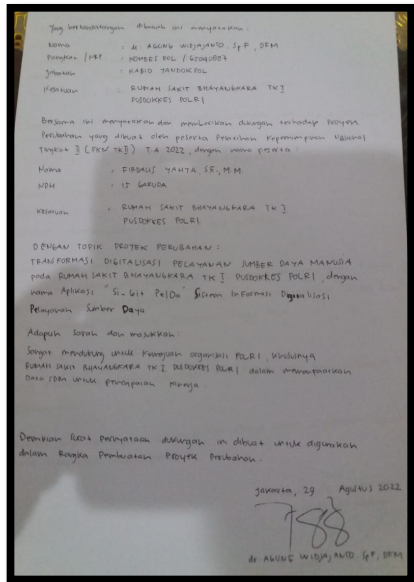 Yang bertandatangan dibawah ini menyatakan :
Nama : dr. AGUNG WIDJAJANTO. SpF, DFM
Pangkat / NRP : KOMBES POL /
Jabatan : KABID YANDOKPOL
Kesatuan : RUMAH SAKIT BHAYANGKARA TK I
PUSDOKKES POLRI
Bersama ini menyatakan dan memberikan dukungan terhadap Proyek
Perubahan yang dibuat oleh peserta Pelatihan Kepemimpinan Nasional
Tingkat II (PKN TK II) T.A 2022, dengan nama peserta :
Nama : FIRDAUS YAHYA, SE., M.M.
NDH : 15 GARUDA
Kesatuan : RUMAH SAKIT BHAYANGKARA TK I
PUSDOKKES POLRI
DENGAN TOPIK PROYEK PERUBAHAN :
TRANSFORMASI DIGITALISASI PELAYANAN SUMBER DAYA MANUSIA
pada RUMAH SAKIT BHAYANGKARA TK I PUSDOKKES POLRI, dengan
nama Aplikasi "Si-Git Pe/Da" Sistem Informasi Digitalisasi
Pelayanan Sumber Daya
Adapun Saran dan masukkan :
Sangat mendukung untuk Kemajuan organisasi POLRI, khususnya
RUMAH SAKIT BHAYANGKARA TK I PUSDOKKES POLRI dalam memanfaatkan
Data SDM untuk pencapaian kinerja.
Demikian Surat Pernyataan dukungan ini dibuat untuk digunakan
dalam Rangka Pembuatan Proyek Perubahan.
Jakarta, 29 Agustus 2022
dr AGUNG WIDJAJANTO. SpF, DFM